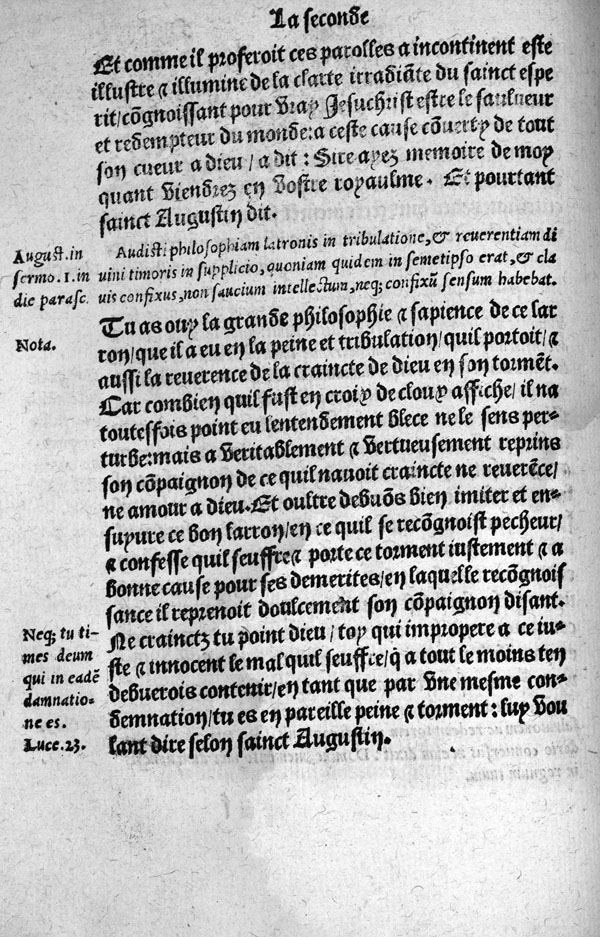 La seconde
Et comme il proferoit ces parolles a incontinent este
illustre & illumine de la clarte irradiãte du sainct espe
rit/cõgnoissant pour vray Jesuchrist estre le saulueur
et redempteur du monde: a ceste cause cõuerty de tout
son cueur a dieu/a dit: Sire ayez memoire de moy
quant viendrez en vostre royaulme. Et pourtant
sainct Augustin dit.
August. in
sermo.1.in
die parasc.
Audisti philosophiam latronis in tribulatione, & reuerentiam di
uini timoris in supplicio, quoniam quidem in semetipso erat, & cla
uis confixus, non saucium intellectum, neq; confixũ sensum habebat.
Nota.
Tu as ouy la grande philosophie & sapience de ce lar
ron/que il a eu en la peine et tribulation/quil portoit/&
aussi la reuerence de la craincte de dieu en son tormẽt.
Car combien quil fust en croix de cloux affiche/il na
toutesfois point eu lentendement blece ne le sens per-
turbe: mais a veritablement & vertueusement reprins
son cõpaignon de ce quil nauoit craincte ne reuerẽce/
ne amour a dieu. Et oultre debuõs bien imiter et en-
suyure ce bon larron/en ce quil se recõgnoist pecheur/
& confesse quil seuffre & porte ce torment iustement & a
bonne cause pour ses demerites/en laquelle recõgnois
sance il reprenoit doulcement son cõpaignon disant.
Neq; tu ti-
mes deum
qui in eadẽ
damnatio-
ne es.
Luce.23.
Ne crainctz tu point dieu/toy qui impropere a ce iu-
ste & innocent le mal quil seuffre/q̃ a tout le moins ten
debuerois contenir/en tant que par vne mesme con-
demnation/tu es en pareille peine & torment: luy vou
lant dire selon sainct Augustin.